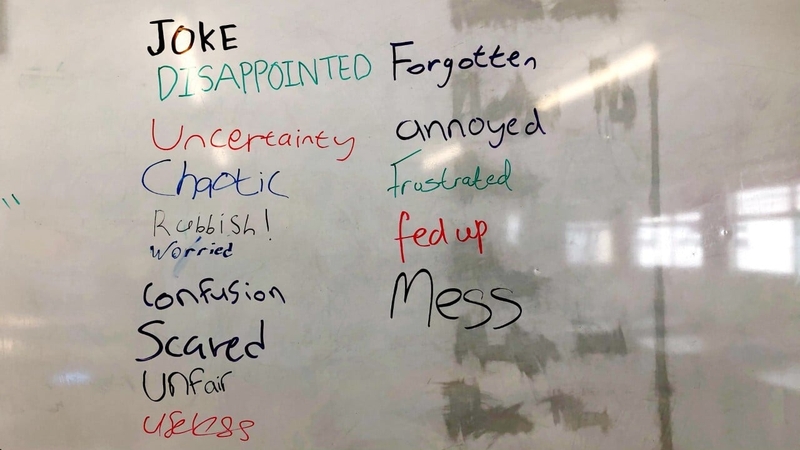 JOKE
DISAPPOINTED
Uncertainty
Chaotic
Rubbish!
Worried
confusion
Scared
unfair
useless
Forgotten
annoyed
Frustrated
fed up
Mess